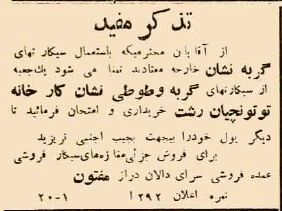 تذکر مفید
از آقایان محترمیکه باستعمال سیگارتهای
گربه نشان خارجه معتادند تمنا می شود یك جعبه
از سیگارتهای گربه و طوطی نشان کار خانه
توتونچیان رشت خریداری و امتحان فرمائید تا
دیگر پول خودرا بیجهت بجیب اجنبی نریزید
برای فروش جزئی مفازه‌های سیگار فروشی
عمده فروشی سرای دالان دراز مفتون
نمره اعلان ۱۲۹۲ ۱-۲۰